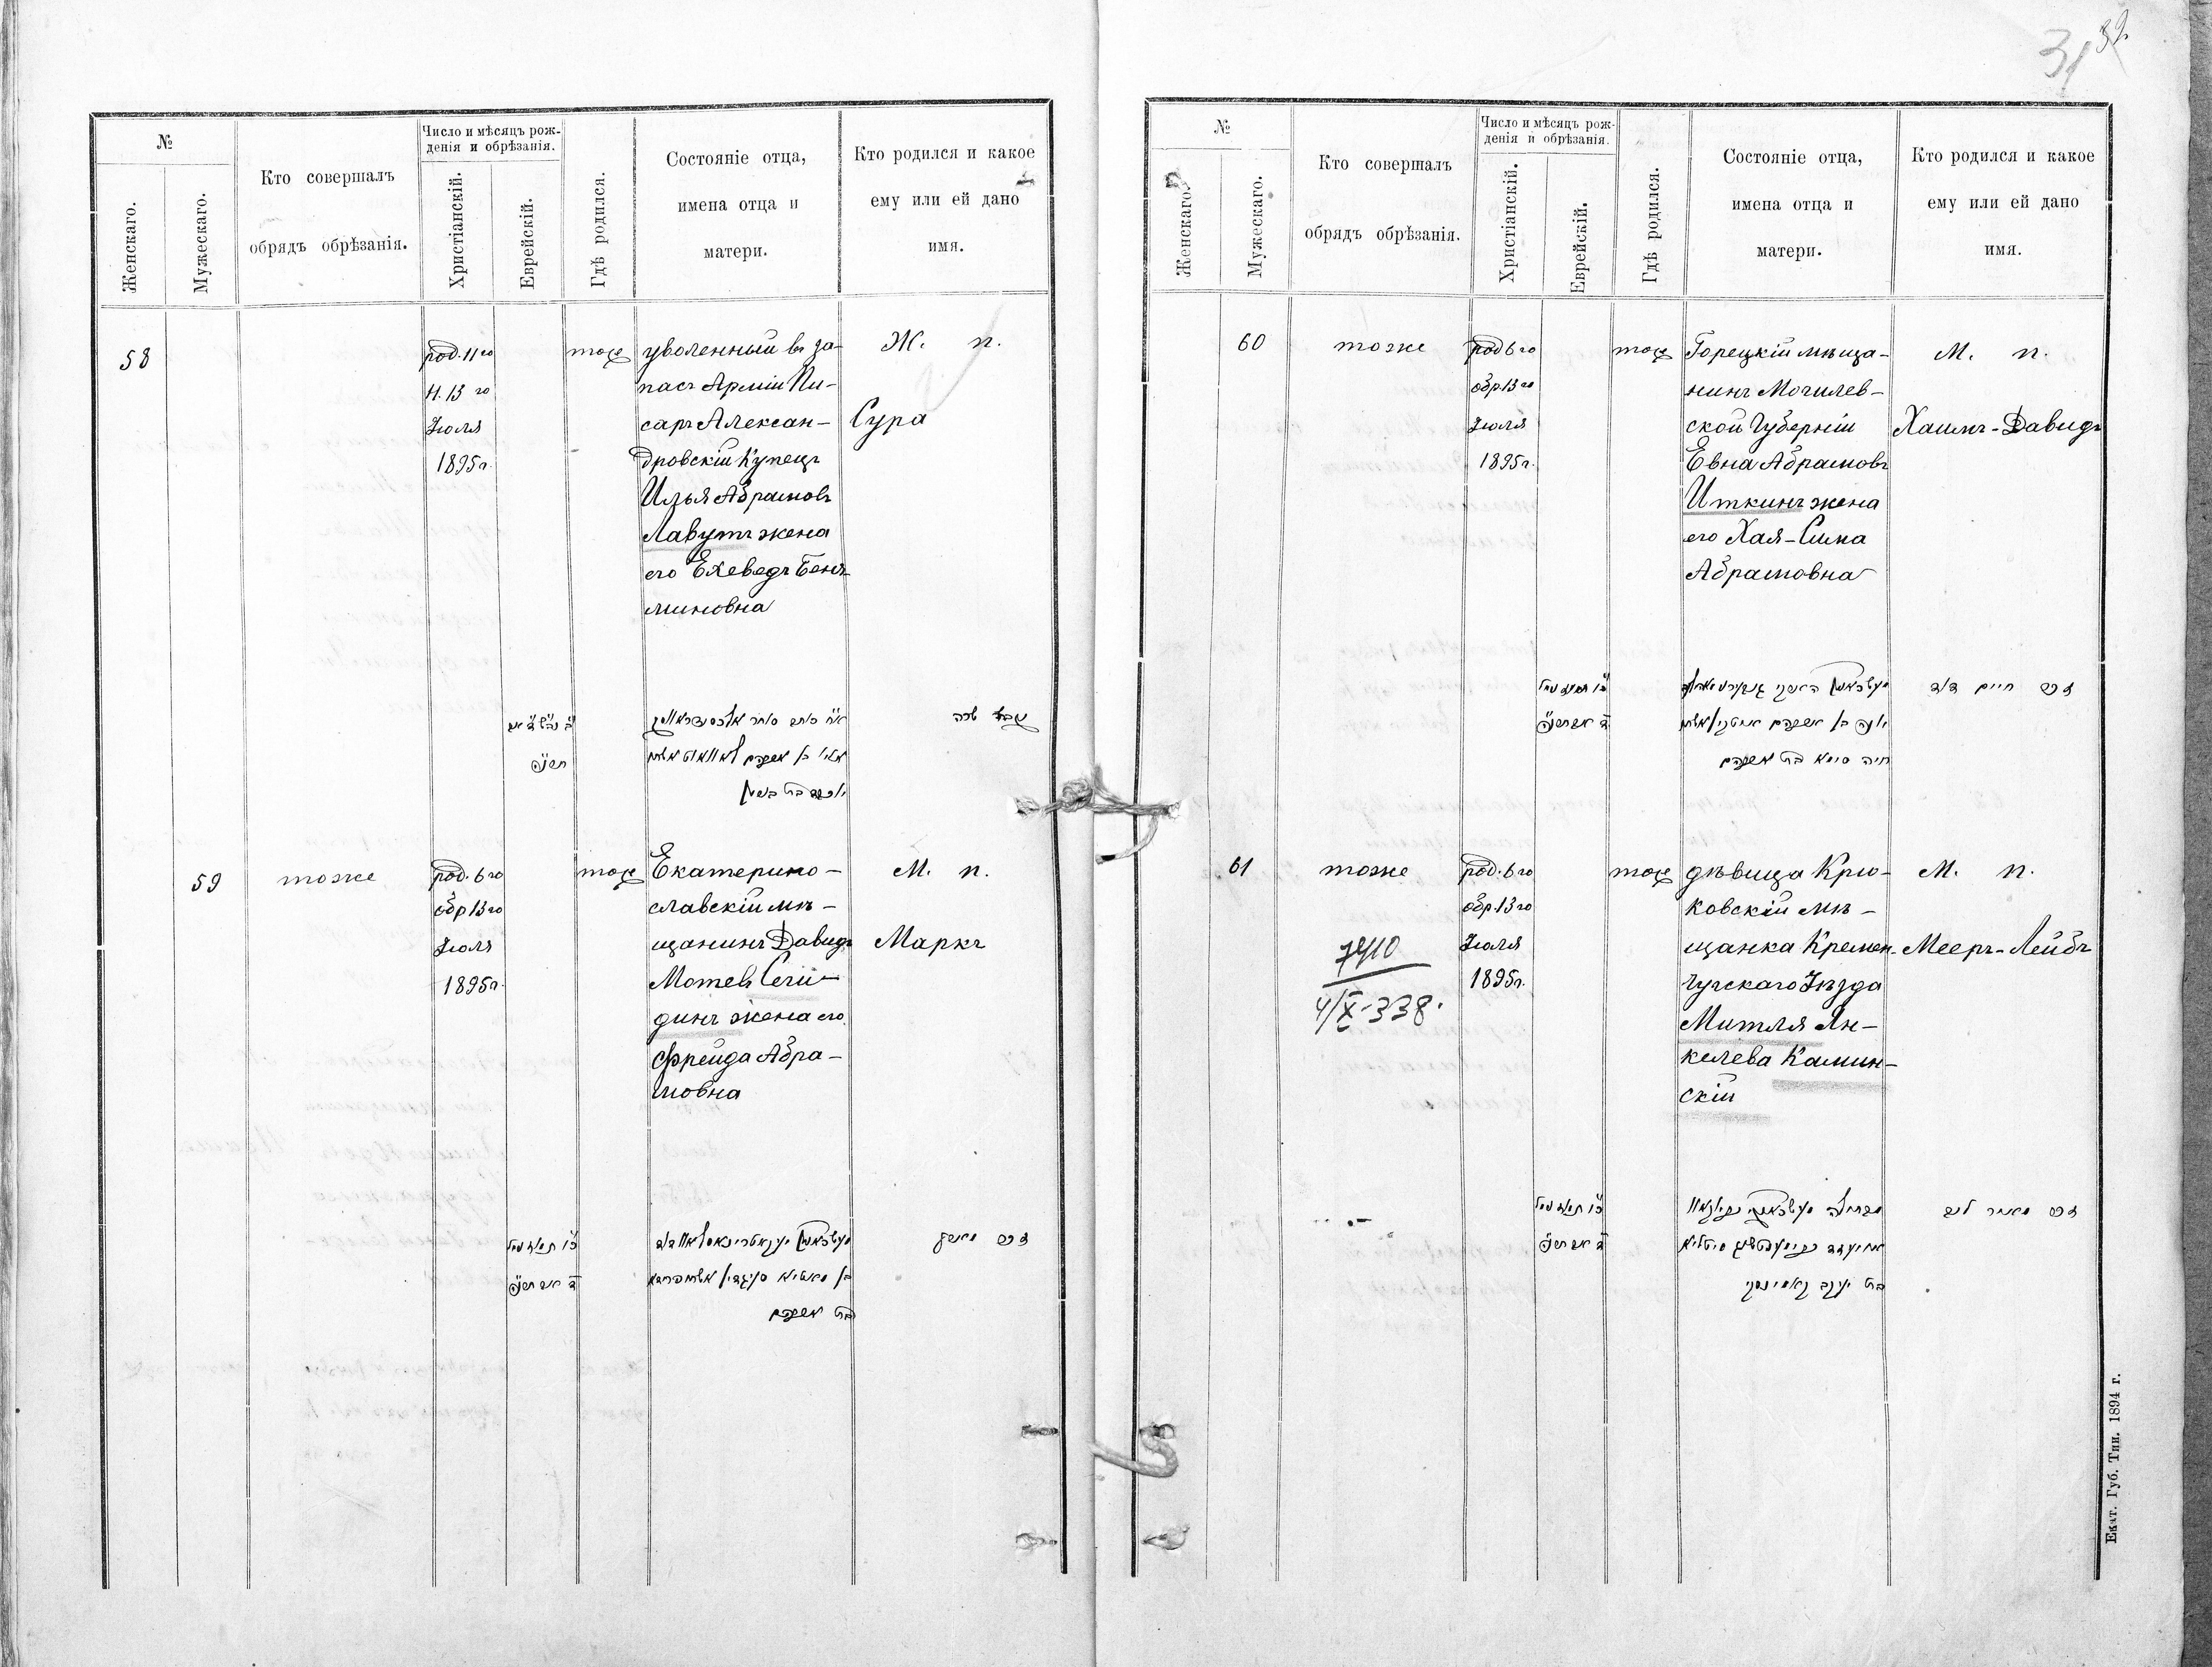 32
31
№
Женскаго.
Мужескаго.
Кто совершалъ
обрядъ обрѣзанія.
Число и мѣсяцъ рож-
денія и обрѣзанія.
Христіанскій.
Еврейскій.
Гдѣ родился.
Состояніе отца,
имена отца и
матери.
Кто родился и какое
ему или ей дано
имя.
58
род. 11го
н. 13 го
Іюля
1895г.
тоже
уволенный въ за-
пасъ Арміи Пи-
саръ Алексан-
дровскій Купецъ
Илья Абрамовъ
Лавутъ жена
его Ехеведъ Беня-
миновна
Ж. п.
Сура
שרה
59
тоже
род. 6го
обр 13го
Іюля
1895г.
тоже
Екатерино-
славскій мѣ-
щанинъ Давидъ
Мотевъ Сели-
динъ жена его
Фрейда Абра-
мовна
М. п.
Маркъ
בת אברהם
№
Женскаго.
Мужескаго.
Кто совершалъ
обрядъ обрѣзанія.
Число и мѣсяцъ рож-
денія и обрѣзанія.
Христіанскій.
Еврейскій.
Гдѣ родился.
Состояніе отца,
имена отца и
матери.
Кто родился и какое
ему или ей дано
имя.
60
тоже
род 6го
обр. 13го
Іюля
1895г.
тоже
Горецкій мѣща-
нинъ Могилев-
ской Губерніи
Евна Абрамовъ
Иткинъ жена
его Хая-Сима
Абрамовна
М. п.
Хаимъ-Давидъ
זכר חיים דוד
חיה סימא בת אברהם
61
тоже
7410
4/X-338.
род. 6го
обр. 13го
Іюля
1895г.
тоже
дѣвица Крю-
ковскій мѣ-
щанка Кремен-
чугскаго Уѣзда
Митля Ян-
келева Камин-
скій
М. п.
Мееръ-Лейбъ
זכר מאיר ליב
בת יעקב קאמינסקי
Екат. Губ. Тип. 1894 г.